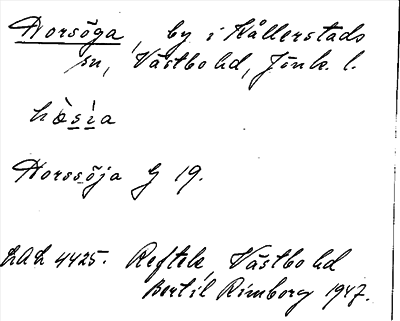 Horsöga, by i Kållerstads
sn, Västbo hd, Jönk. l.
hòsìa
Horssöja G 19.
LAL 4425. Reftele, Västbo hd
Bertil Rimborg 1947.